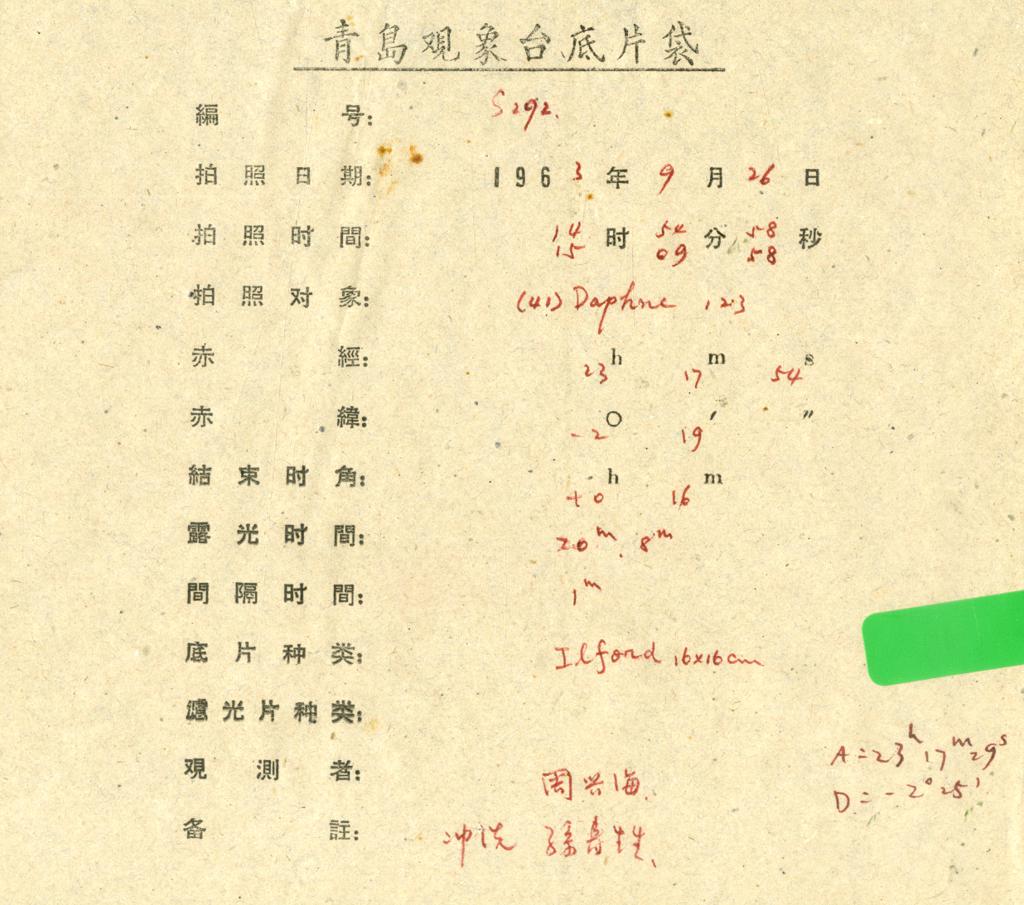 青島观象台底片袋
編号: S292.
拍照日期: 1963年9月26日
拍照时間: 14时54分58秒
15 09 58
拍照对象: (41) Daphne 12.3
赤經: 23h 17m 54s
赤緯: -2° 19′ ″
結束时角: +0h 16m
露光时間: 20m. 8m
間隔时間: 1m
底片种类: Ilford 16x16cm
濾光片种类:
观測者: 周兴海.
备註: 冲洗 孫寿
A=23h17m29s
D=-2°25′